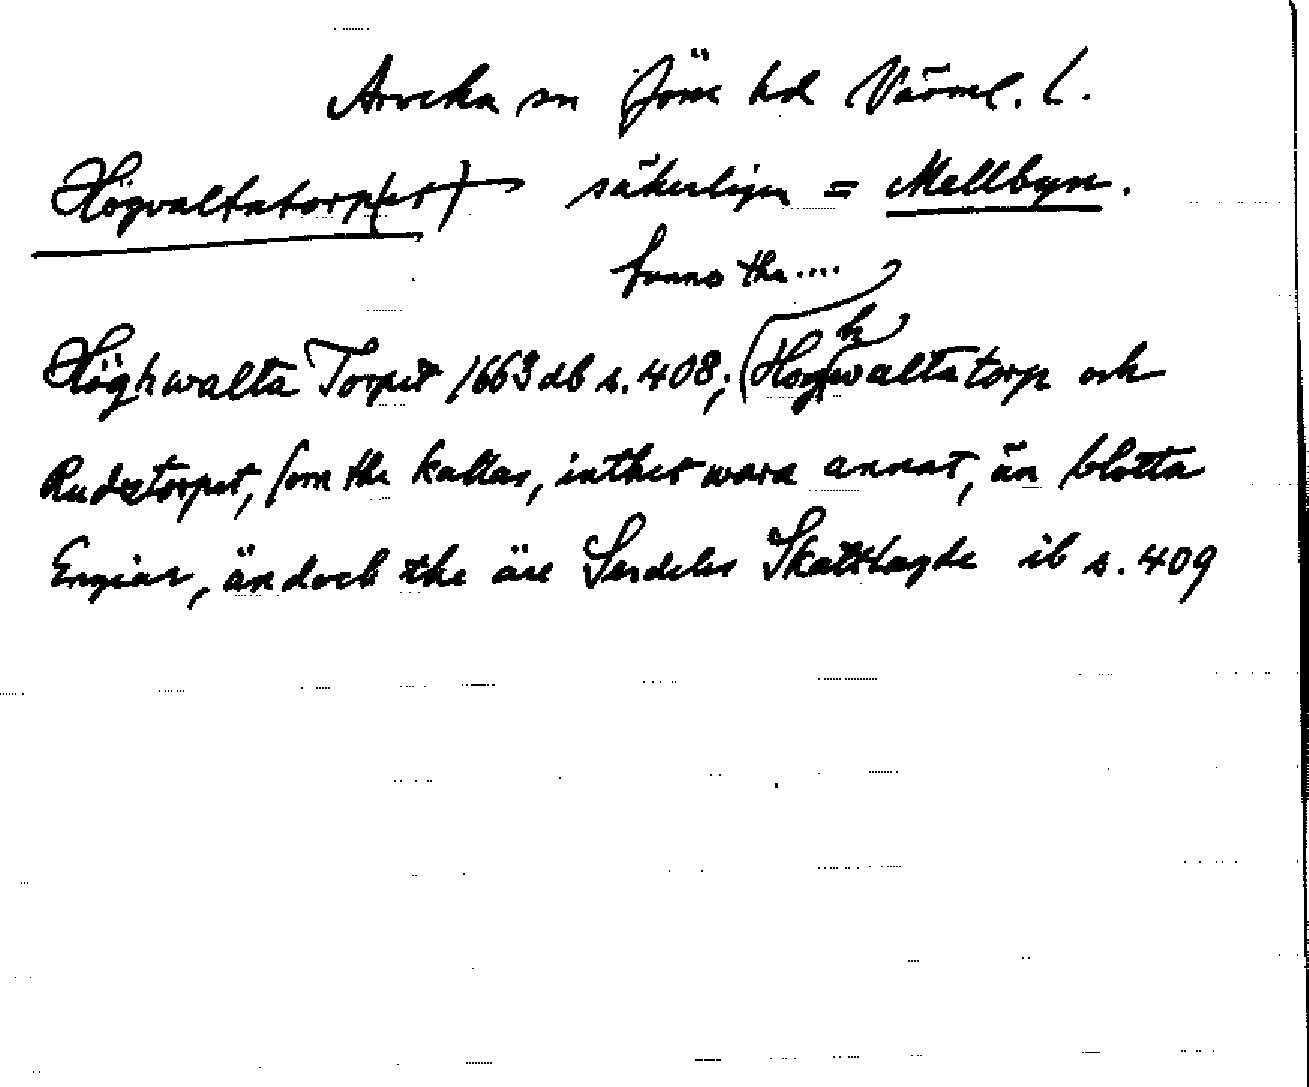 Arvika sn Jösse hd Värml. l.
Högvaltatorp(et) säkerligen = Mellbyn.
funno the ....
Höghwalta Torpet 1663 db s. 408; (Höghwaltatorp och
Rudztorpet, som the kallas, inthet wara annat, än blotta
Engiar, ändoch the äre Serdeles Skattlagde ib s. 409